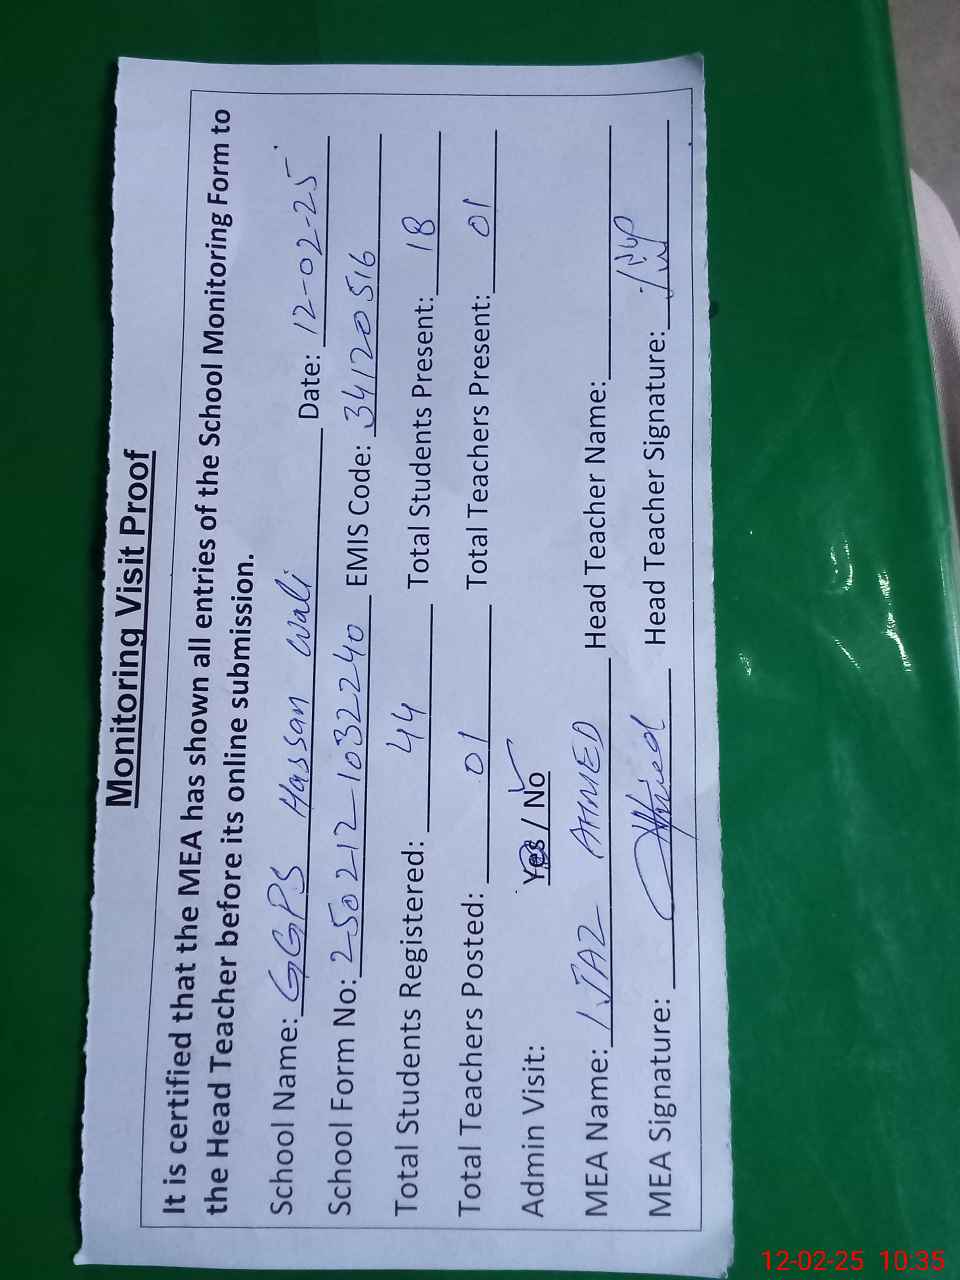 Monitoring Visit Proof
It is certified that the MEA has shown all entries of the School Monitoring Form to
the Head Teacher before its online submission.
School Name: GGPS Hassan Wali Date: 12-02-25
School Form No: 250212-1032240 EMIS Code: 34120516
Total Students Registered: 44 Total Students Present: 18
Total Teachers Posted: 01 Total Teachers Present: 01
Admin Visit: Yes / No
MEA Name: IJAZ AHMED Head Teacher Name:
MEA Signature: Head Teacher Signature:
12-02-25 10:35